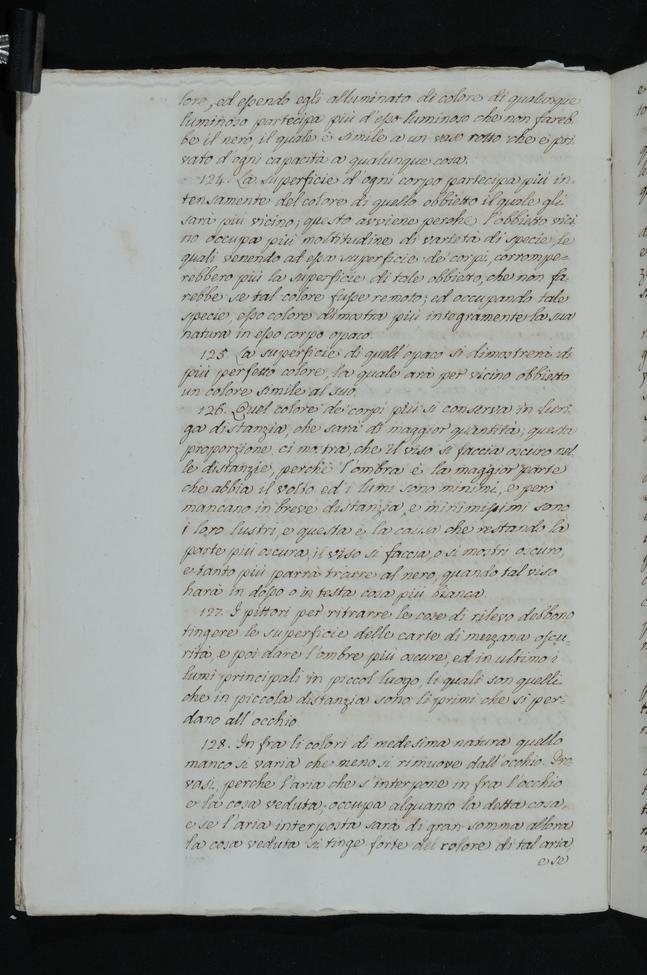 lore, ed essendo egli alluminato di colore di qualunque
luminoso partecipa più d'esso luminoso che non fareb
be il nero, il quale è simile a un vaso rotto che è pri
vato d'ogni capacità a qualunque cosa.
124. La superficie d'ogni corpo partecipa più in
tensamente del colore di quello obbietto il quale gli
sarà più vicino; questo avviene perche l'obbietto vici
no occupa più moltitudine di varietà di specie, le
quali venendo ad essa superficie de corpi, corrompe-
rebbero più la superficie di tale obbietto, che non fa-
rebbe se tal colore fusse remoto; ed occupando tale
specie, esso colore dimostra più integramente la sua
natura in esso corpo opaco.
125. La superficie di quell'opaco si dimostrerà di
più perfetto colore, la quale arà per vicino obbietto
un colore simile al suo.
126. Quel colore de corpi più si conserva in lun-
ga distanzia, che sarà di maggior quantità; questa
proporzione ci mostra, che il viso si faccia oscuro nel
le distanzie, perche l'ombra è la maggior parte
che abbia il volto ed i lumi sono minimi, e però
mancano in breve distanzia, e minimissimi sono
i loro lustri, e questa è la causa che restando la
parte più oscura, il viso si faccia, o si mostri oscuro,
e tanto più parrà trarre al nero, quando tal viso
harà in dosso o in testa cosa più bianca.
127. I pittori per ritrarre le cose di rilevo debbono
tingere le superficie delle carte di mezzana oscu-
rità, e poi dare l'ombre più oscure, ed in ultimo i
lumi principali in piccol luogo, li quali son quelli
che in piccola distanzia sono li primi che si per-
dano all'occhio.
128. In fra li colori di medesima natura quello
manco si varia che meno si rimuove dall'occhio. Pro
vasi, perche l'aria che s'interpone in fra l'occhio
e la cosa veduta, occupa alquanto la detta cosa,
e se l'aria interposta sarà di gran somma allora
la cosa veduta si tinge forte del colore di tal aria
e se